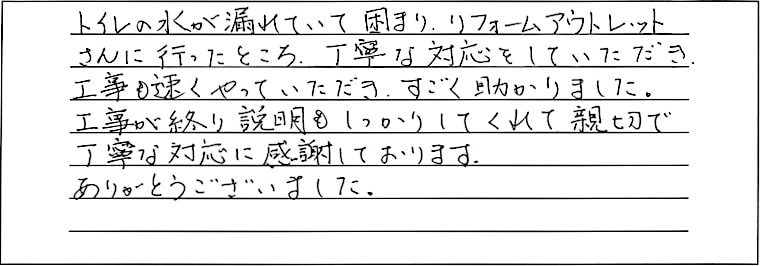 トイレの水が漏れていて困まり、リフォームアウトレット
さんに行ったところ、丁寧な対応をしていただき、
工事も速くやっていただき、すごく助かりました。
工事が終り説明もしっかりしてくれて親切で
丁寧な対応に感謝しております。
ありがとうございました。